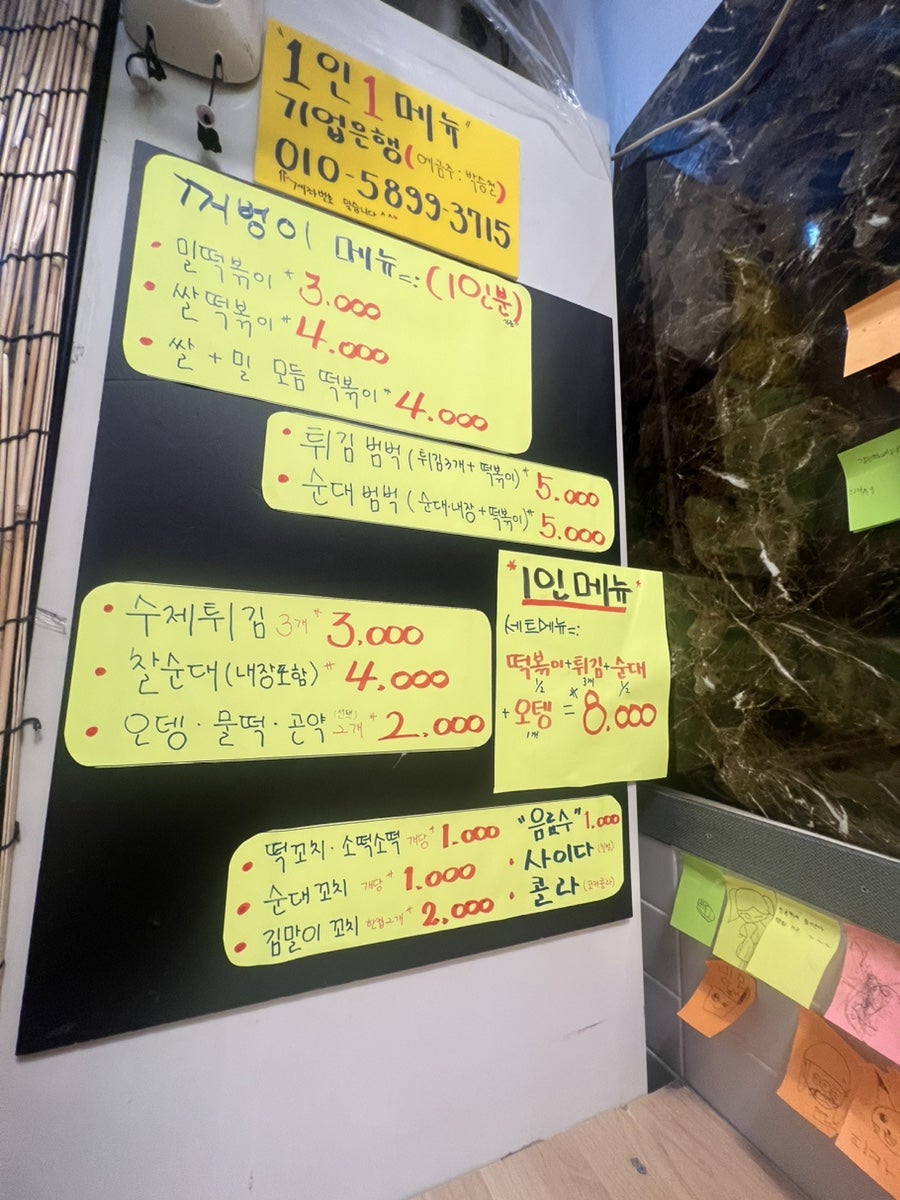 "1인1메뉴"
기업은행(예금주:박승천)
010-5899-3715
계좌번호 맞습니다^^
꺼벙이 메뉴=: (1인분)
• 밀떡볶이 * 3.000
• 쌀떡볶이 * 4.000
• 쌀+밀 모듬 떡볶이 * 4.000
• 튀김범벅(튀김3개+떡볶이)* 5.000
• 순대범벅(순대·내장+떡볶이)* 5.000
• 수제튀김 3개* 3,000
• 찰순대(내장포함)* 4,000
• 오뎅·물떡·곤약 (선택) 2개* 2,000
*1인메뉴*
세트메뉴=:
떡볶이+튀김+순대
1/2 3개 1/2
+오뎅 = 8,000
1개
• 떡꼬치·소떡소떡 개당* 1.000
• 순대꼬치 개당* 1.000
• 김말이 꼬치 한접2개* 2,000
"음료수" 1.000
• 사이다
• 콜라 (코카콜라)